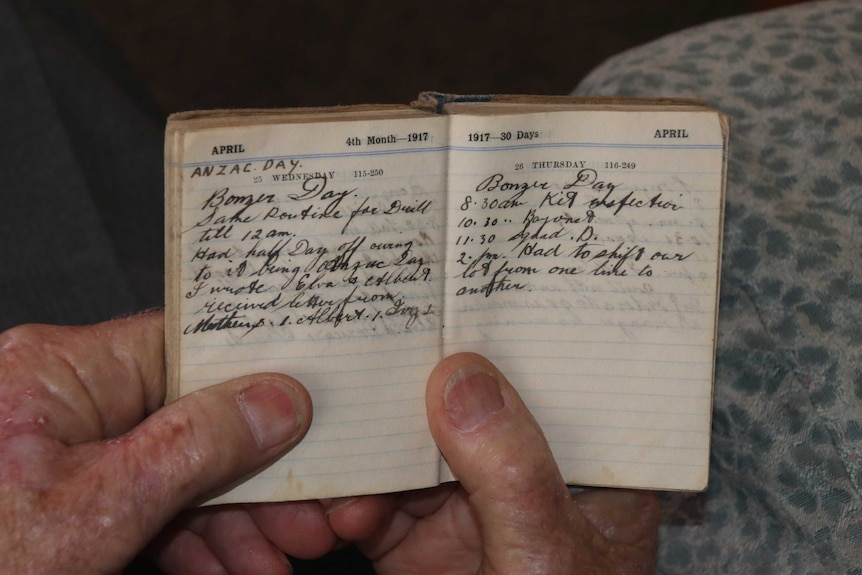 APRIL 4th Month—1917
ANZAC. DAY.
25 WEDNESDAY 115-250
Bonzer Day.
Same Routine for Drill
till 12 am.
Had half Day off owing
to it being Anzac Day
I wrote Elva & Albert.
recieved letter from
Mother, 1. Albert. 1.
1917—30 Days APRIL
26 THURSDAY 116-249
Bonzer Day
8.30am Kit inspection
10.30 ..
11.30 Squad. D.
2. pm. Had to shift our
lot from one line to
another.